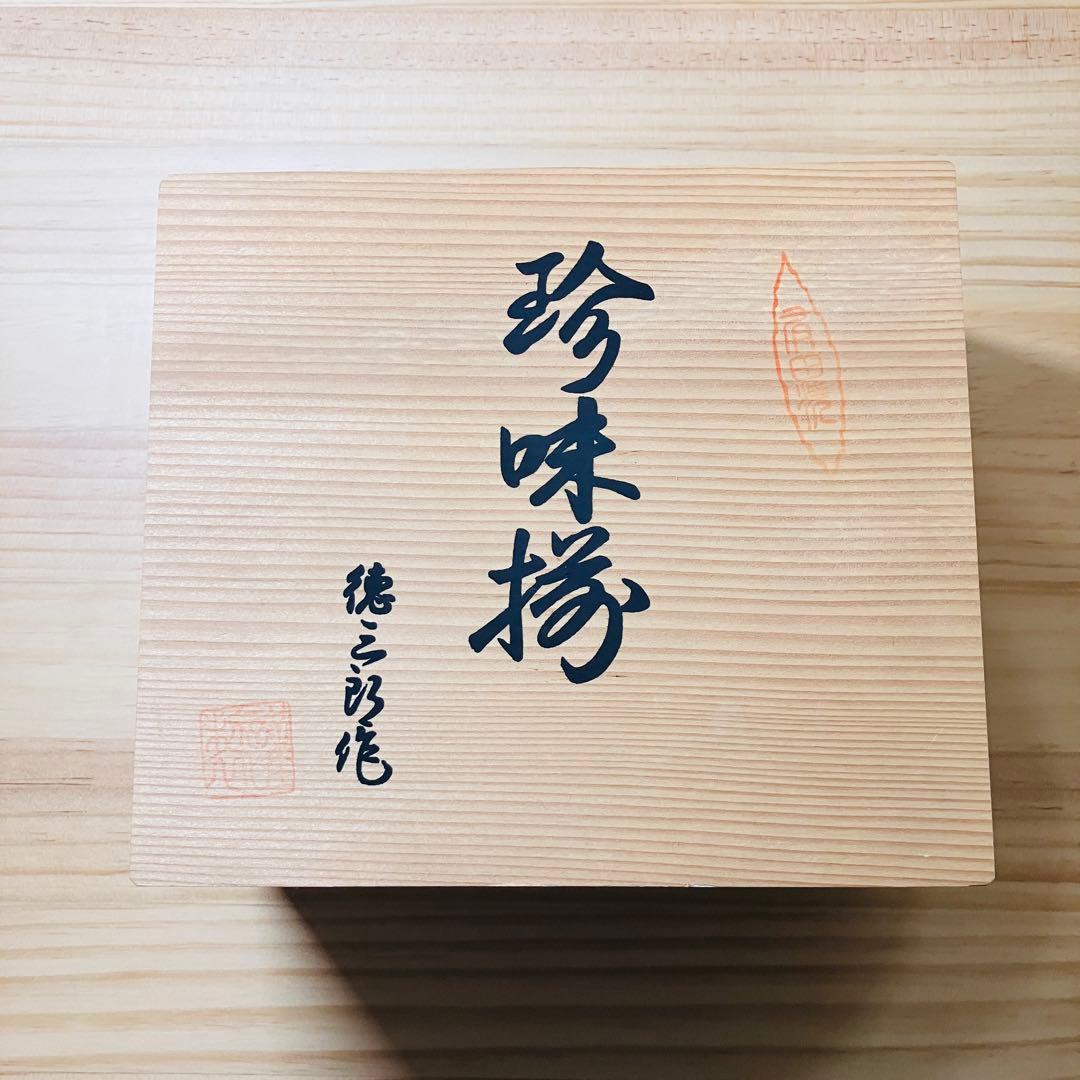 珍味揃
徳三郎作